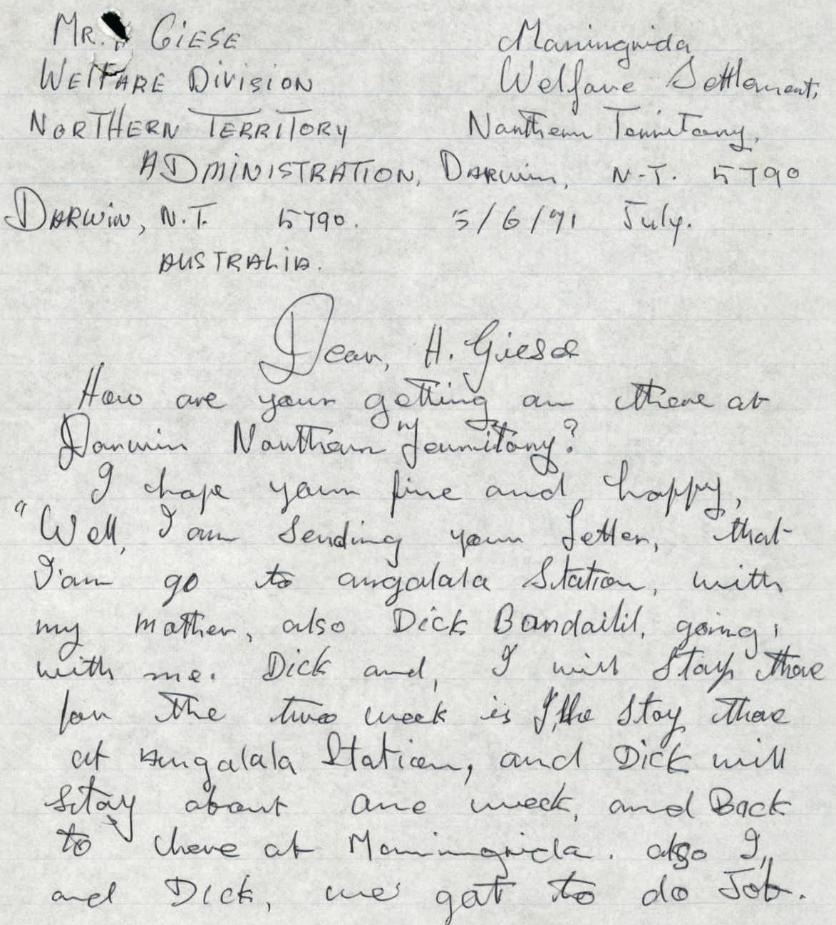 Mr. H Giese
Welfare Division
Northern Territory
Administration,
Darwin, N.T. 5790.
Australia.
Maningrida
Welfare Settlement,
Nanthern Tennitony,
Darwin, N.T. 5790
5/6/71 July.
Dear, H. Giese
How are your getting an there at
Darwin Nauthern Tennitony?
I hope youn fine and happy,
"Well, I am Sending youn Letter, that
I'am go to angalala Station, with
my mother, also Dick Bandailil, going,
with me. Dick and, I will Stay there
fan The two week is I, the Stay there
at Angalala Station, and Dick will
Stay about ane week, and Back
to here at Maningrida. also I,
and Dick, we gat to do Job.